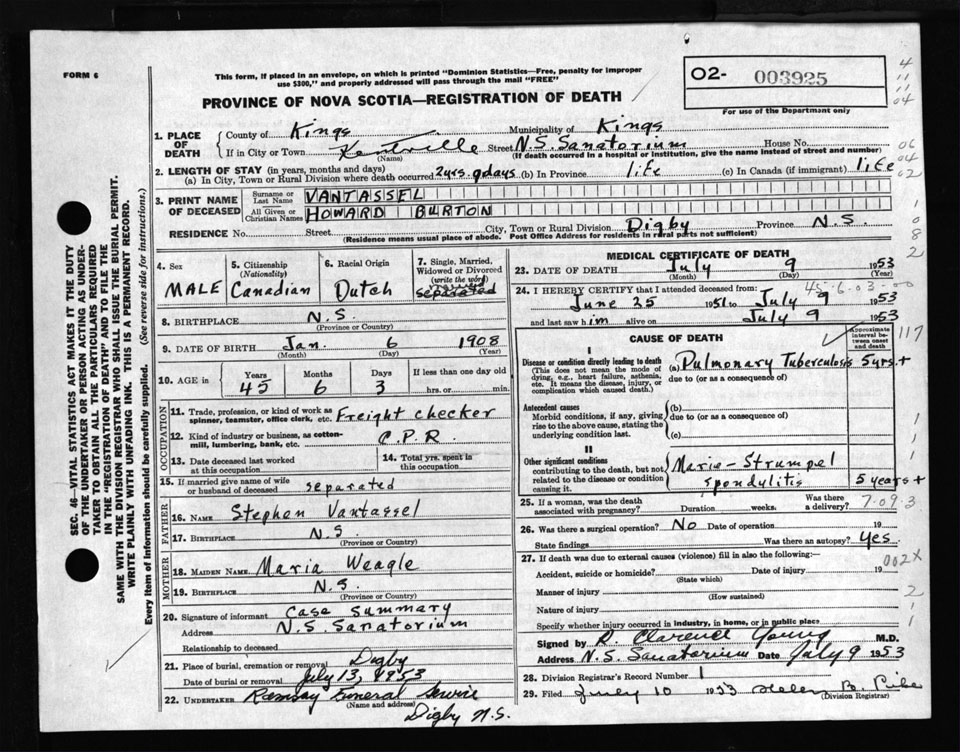 FORM 6
This form, if placed in an envelope, on which is printed "Dominion Statistics—Free, penalty for improper
use $300," and properly addressed will pass through the mail "FREE"
PROVINCE OF NOVA SCOTIA—REGISTRATION OF DEATH
02- 003925
For use of the Department only
4
11
11
04
1. PLACE OF DEATH
County of Kings Municipality of Kings
If in City or Town Kentville Street N.S. Sanatorium House No.
(Name) (If death occurred in a hospital or institution, give the name instead of street and number)
06
04
02
2. LENGTH OF STAY (in years, months and days)
(a) In City, Town or Rural Division where death occurred 2yrs. 9days (b) In Province life (c) In Canada (if immigrant) life
3. PRINT NAME OF DECEASED
Surname or Last Name VANTASSEL
All Given or Christian Names HOWARD BURTON
RESIDENCE No. Street City, Town or Rural Division Digby Province N.S.
(Residence means usual place of abode. Post Office Address for residents in rural parts not sufficient)
1
0
8
2
SEC. 46—VITAL STATISTICS ACT MAKES IT THE DUTY
OF THE UNDERTAKER OR PERSON ACTING AS UNDER-
TAKER TO OBTAIN ALL THE PARTICULARS REQUIRED
IN THE "REGISTRATION OF DEATH" AND TO FILE THE
SAME WITH THE DIVISION REGISTRAR WHO SHALL ISSUE THE BURIAL PERMIT.
WRITE PLAINLY WITH UNFADING INK. THIS IS A PERMANENT RECORD.
Every item of information should be carefully supplied. (See reverse side for instructions.)
4. Sex
MALE
5. Citizenship
(Nationality)
Canadian
6. Racial Origin
Dutch
7. Single, Married,
Widowed or Divorced
(write the word)
separated
8. BIRTHPLACE N.S.
(Province or Country)
9. DATE OF BIRTH Jan. 6 1908
(Month) (Day) (Year)
10. AGE in
Years Months Days If less than one day old
45 6 3 hrs. or min.
OCCUPATION
11. Trade, profession, or kind of work as
spinner, teamster, office clerk, etc. Freight checker
12. Kind of industry or business, as cotton-
mill, lumbering, bank, etc. C.P.R.
13. Date deceased last worked
at this occupation
14. Total yrs. spent in
this occupation
15. If married give name of wife
or husband of deceased separated
FATHER
16. NAME Stephen Vantassel
17. BIRTHPLACE N.S.
(Province or Country)
MOTHER
18. MAIDEN NAME Maria Weagle
19. BIRTHPLACE N.S.
(Province or Country)
20. Signature of informant Case Summary
Address N.S. Sanatorium
Relationship to deceased
21. Place of burial, cremation or removal Digby
Date of burial or removal July 13, 1953
22. UNDERTAKER Ramsay General Service
(Name and address)
Digby N.S.
MEDICAL CERTIFICATE OF DEATH
23. DATE OF DEATH July 9 1953
(Month) (Day) (Year)
24. I HEREBY CERTIFY that I attended deceased from: 45-6-03-00
June 25 1951 to July 9 1953
and last saw him alive on July 9 1953
CAUSE OF DEATH
Approximate
interval be-
tween onset
and death
117
I
Disease or condition directly leading to death
(This does not mean the mode of
dying, e.g., heart failure, asthenia,
etc. It means the disease, injury, or
complication which caused death.)
(a) Pulmonary Tuberculosis 5yrs+
due to (or as a consequence of)
Antecedent causes
Morbid conditions, if any, giving
rise to the above cause, stating the
underlying condition last.
(b)
due to (or as a consequence of)
(c)
II
Other significant conditions
contributing to the death, but not
related to the disease or condition
causing it.
Marie-Strumpel
spondylitis 5 years +
25. If a woman, was the death
associated with pregnancy? Duration weeks. Was there
a delivery? 7-09-3
26. Was there a surgical operation? No Date of operation 19
State findings Was there an autopsy? Yes
27. If death was due to external causes (violence) fill in also the following:— 002X
Accident, suicide or homicide? Date of injury 19
(State which)
Manner of injury
(How sustained)
2
Nature of injury
Specify whether injury occurred in industry, in home, or in public place
Signed by R. Clarence Young M.D.
Address N.S. Sanatorium Date July 9 1953
28. Division Registrar's Record Number 1
29. Filed July 10 1953 Helen B.
(Division Registrar)